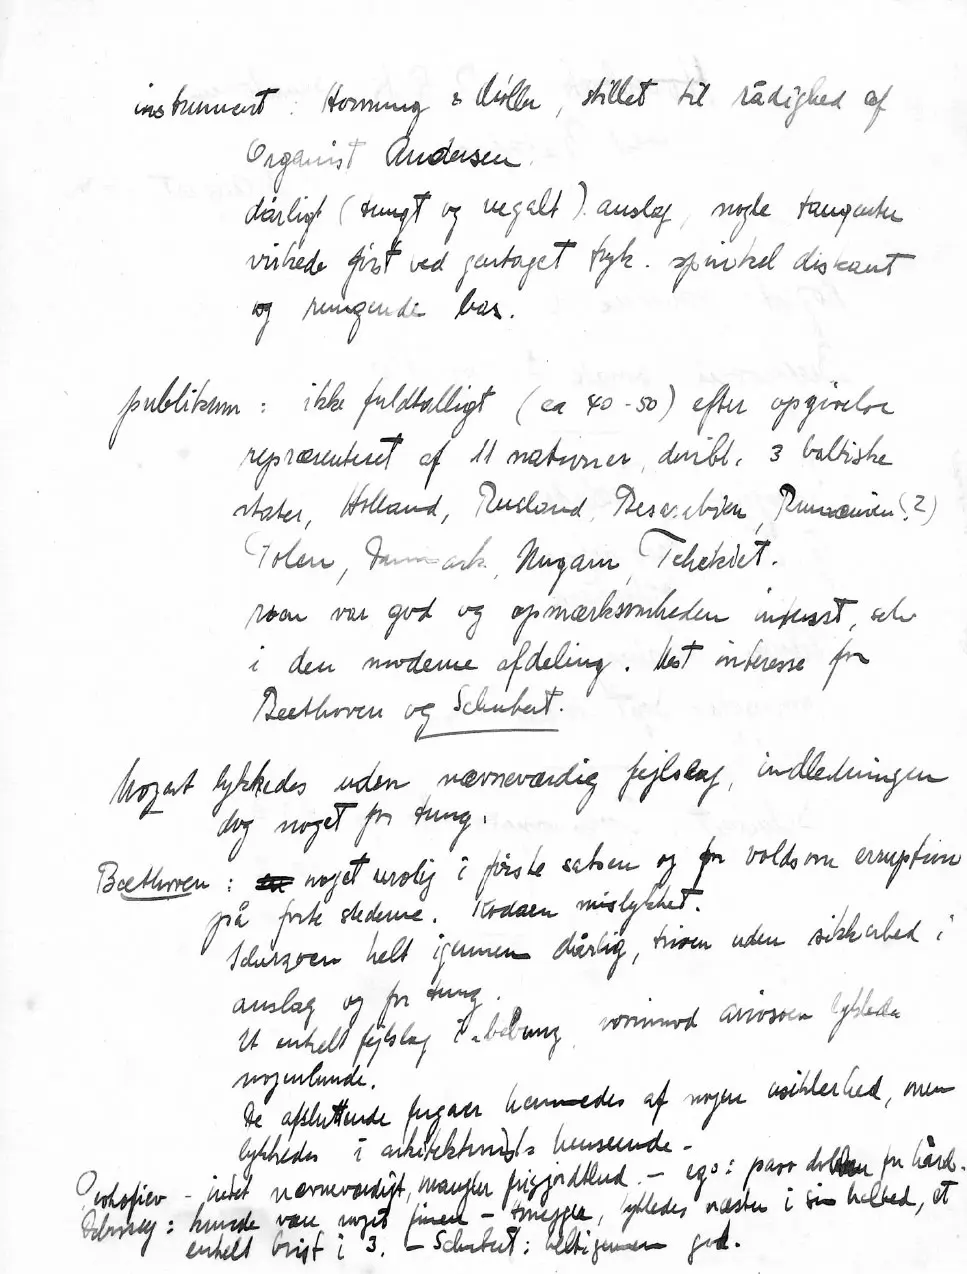 instrument: Hornung & Møller, stillet til rådighed af
Organist Andersen.
dårligt (tungt og uegalt) anslag, nogle tangenter
virkede først ved gentaget tryk. spinkel diskant
og rungende bas.
publikum: ikke fuldtalligt (ca 40-50) efter opgivelse
repræsenteret af 11 nationer, deribl. 3 baltiske
stater, Holland, Rusland, Bessarabien, Rumænien(?)
Polen, Danmark, Ungarn, Tchekiet.
roen var god og opmærksomheden intenst, selv
i den moderne afdeling. Mest interesse for
Beethoven og Schubert.
Mozart lykkedes uden nævneværdig fejlslag, indledningen
dog noget for tung.
Beethoven: noget urolig i første satsen og for voldsom erruption
på forte stederne. Kodaen mislykket.
Scherzoen helt igennem dårlig, trioen uden sikkerhed i
anslag og for tung.
Et enkelt fejlslag i "bebung, hvorimod ariosoen lykkedes
nogenlunde.
De afsluttende fugaer hæmmedes af nogen usikkerhed, men
lykkedes i arkitektonisk henseende -
Prokofiev - intet nævneværdigt, mangler frigjordthed. - ego: pass for hård.
Debussy: kunde være noget finere - lykkedes næsten i sin helhed, et
enkelt brist i 3. - Schubert: helt igennem god.